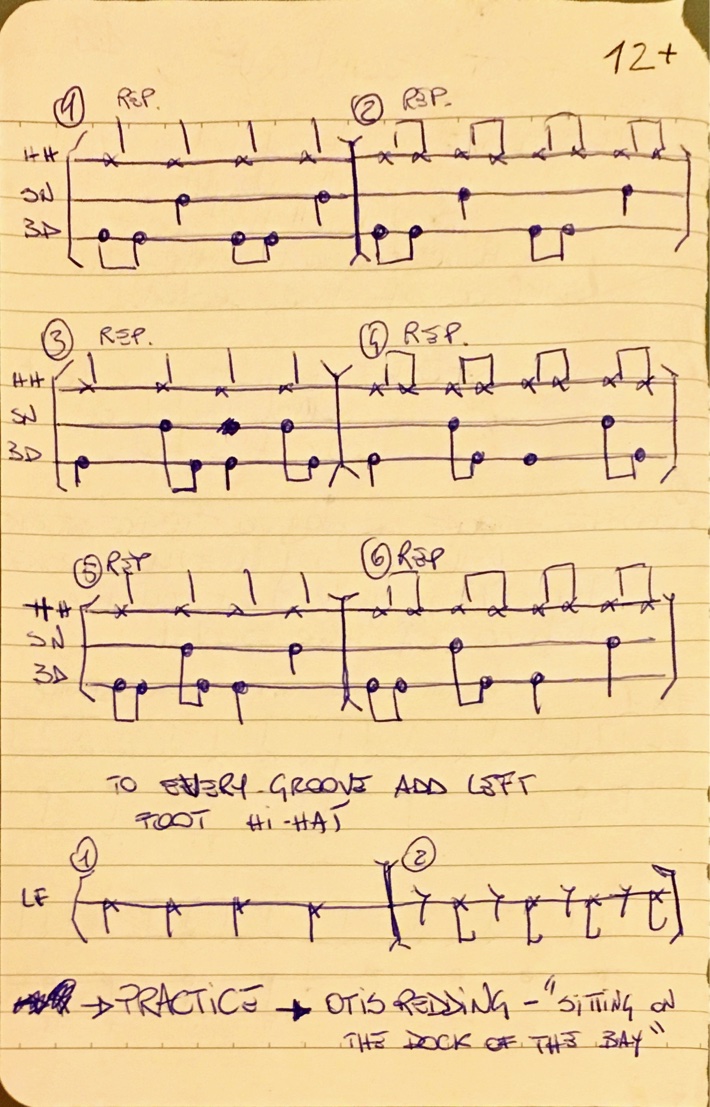 12+
① REP. ② REP.
HH
SN
BD
③ REP. ④ REP.
HH
SN
BD
⑤ REP ⑥ REP
HH
SN
BD
TO EVERY GROOVE ADD LEFT
FOOT HI-HAT
① ②
LF
→ PRACTICE → OTIS REDDING - "SITTING ON
THE DOCK OF THE BAY"